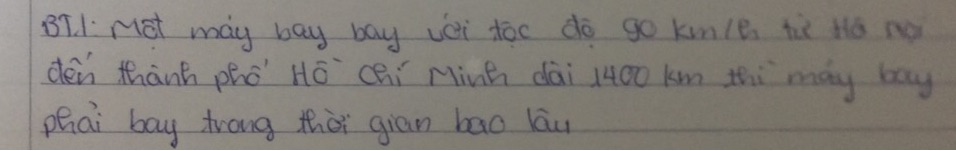 BT1: Một máy bay bay với tốc độ 90 km/h từ Hà Nội
đến thành phố Hồ Chí Minh dài 1400 km thì máy bay
phải bay trong thời gian bao lâu